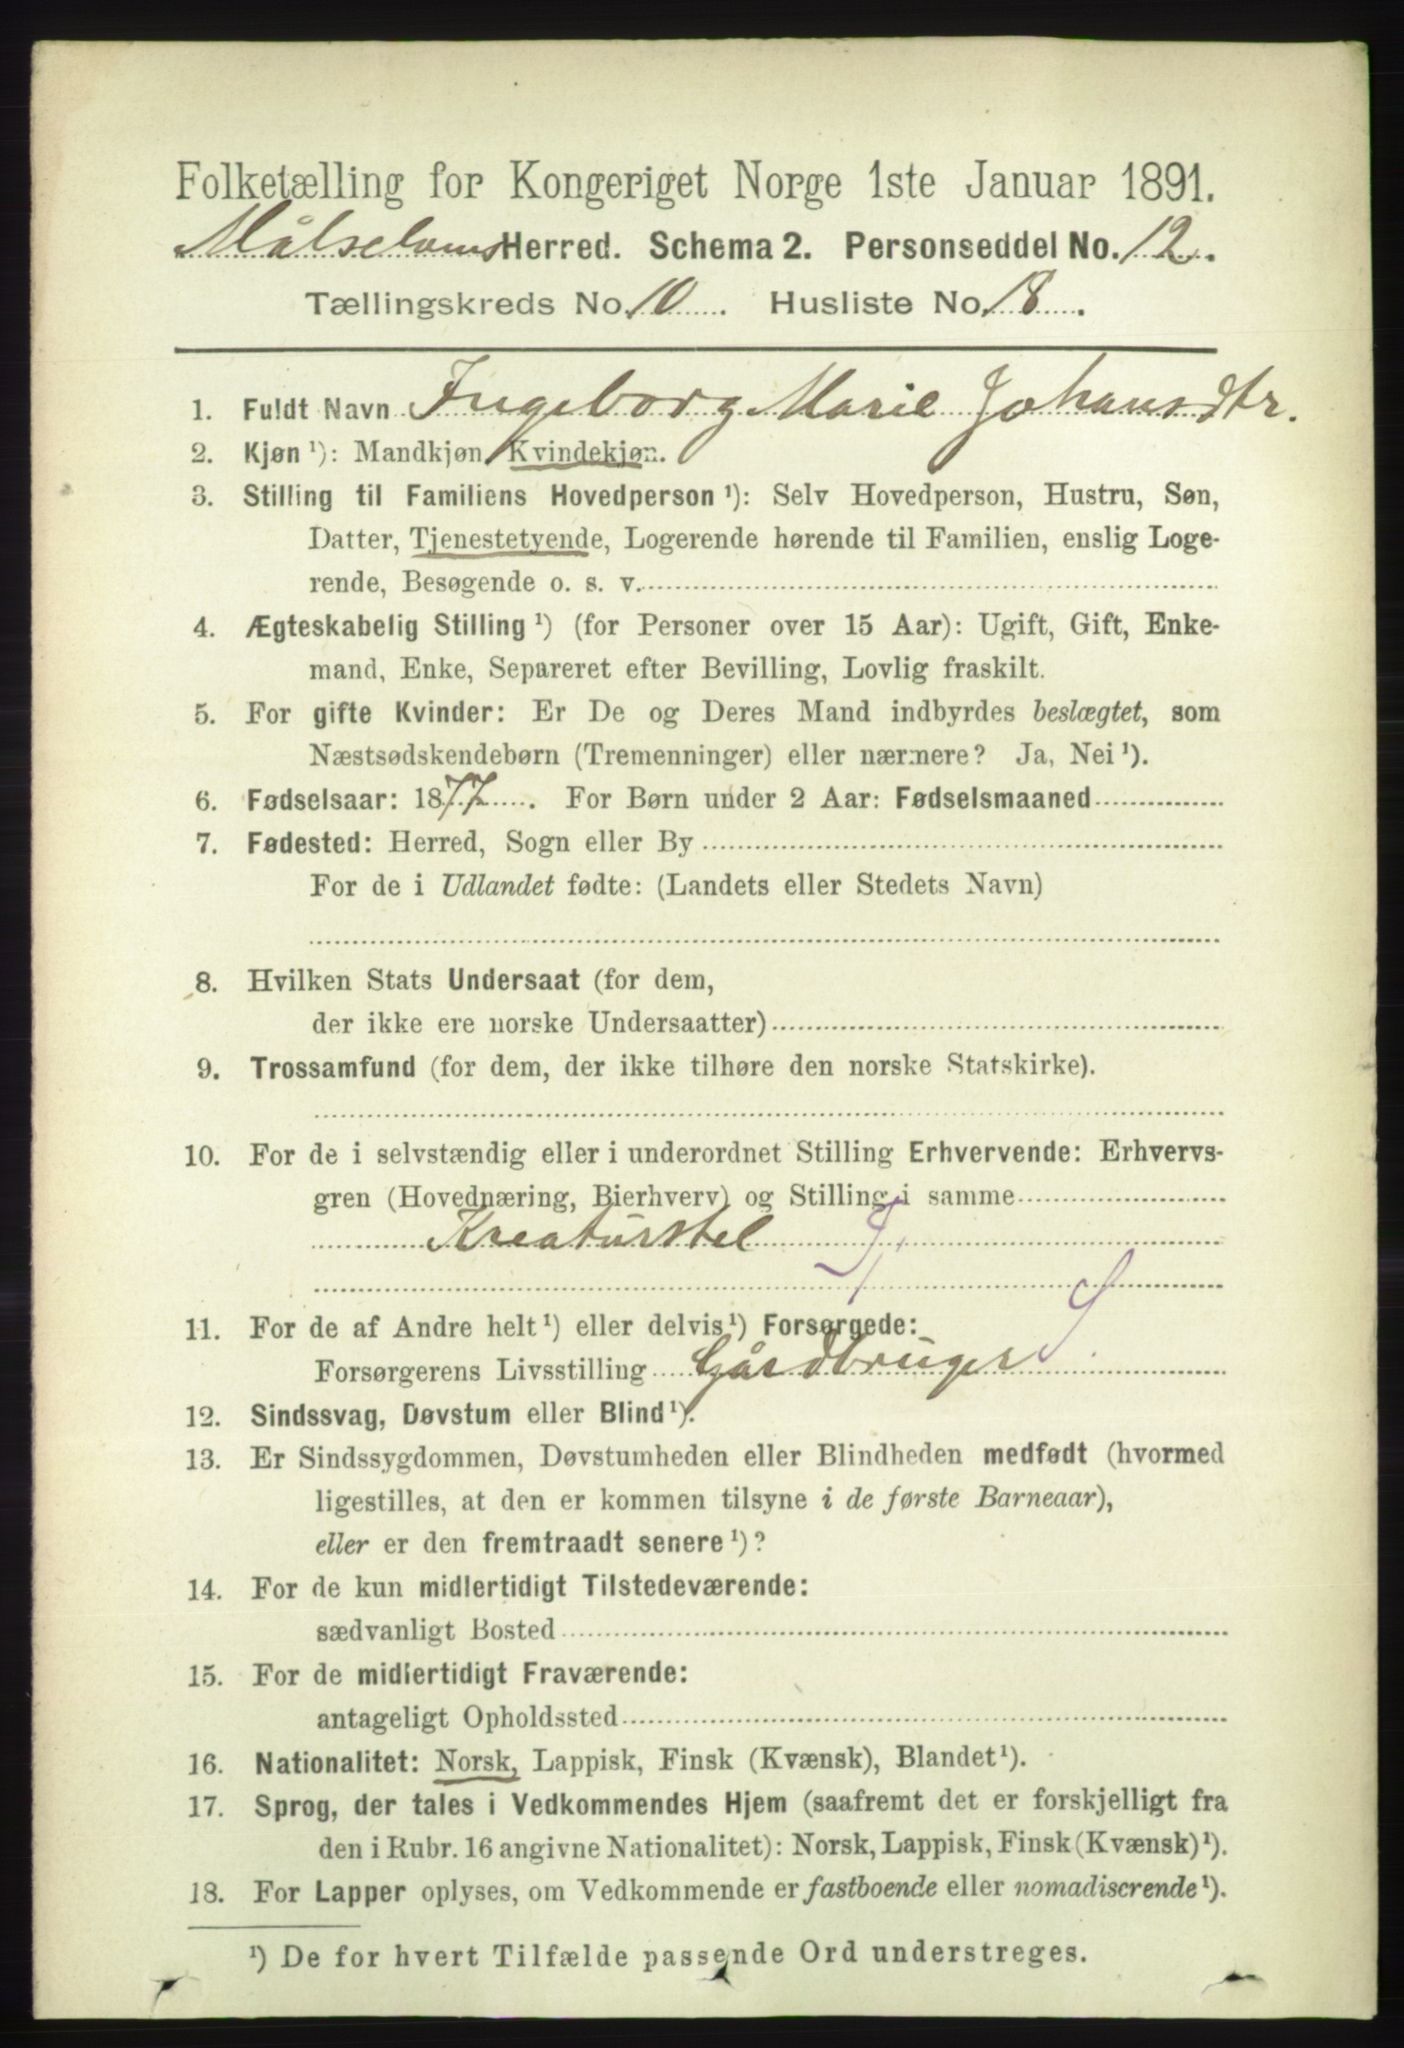 Folketælling for Kongeriget Norge 1ste Januar 1891.
Målselvens Herred. Schema 2. Personseddel No. 12.
Tællingskreds No. 10. Husliste No. 18.
1. Fuldt Navn Ingeborg Marie Johansdtr.
2. Kjøn ¹): Mandkjøn, Kvindekjøn.
3. Stilling til Familiens Hovedperson ¹): Selv Hovedperson, Hustru, Søn,
Datter, Tjenestetyende, Logerende hørende til Familien, enslig Loge-
rende, Besøgende o. s. v.
4. Ægteskabelig Stilling ¹) (for Personer over 15 Aar): Ugift, Gift, Enke-
mand, Enke, Separeret efter Bevilling, Lovlig fraskilt.
5. For gifte Kvinder: Er De og Deres Mand indbyrdes beslægtet, som
Næstsødskendebørn (Tremenninger) eller nærmere? Ja, Nei ¹).
6. Fødselsaar: 1877. For Børn under 2 Aar: Fødselsmaaned
7. Fødested: Herred, Sogn eller By
For de i Udlandet fødte: (Landets eller Stedets Navn)
8. Hvilken Stats Undersaat (for dem,
der ikke ere norske Undersaatter)
9. Trossamfund (for dem, der ikke tilhøre den norske Statskirke).
10. For de i selvstændig eller i underordnet Stilling Erhvervende: Erhvervs-
gren (Hovednæring, Bierhverv) og Stilling i samme
Kreaturstel
11. For de af Andre helt ¹) eller delvis ¹) Forsørgede:
Forsørgerens Livsstilling Gårdbruger S
12. Sindssvag, Døvstum eller Blind ¹).
13. Er Sindssygdommen, Døvstumheden eller Blindheden medfødt (hvormed
ligestilles, at den er kommen tilsyne i de første Barneaar),
eller er den fremtraadt senere ¹)?
14. For de kun midlertidigt Tilstedeværende:
sædvanligt Bosted
15. For de midlertidigt Fraværende:
antageligt Opholdssted
16. Nationalitet: Norsk, Lappisk, Finsk (Kvænsk), Blandet ¹).
17. Sprog, der tales i Vedkommendes Hjem (saafremt det er forskjelligt fra
den i Rubr. 16 angivne Nationalitet): Norsk, Lappisk, Finsk (Kvænsk) ¹).
18. For Lapper oplyses, om Vedkommende er fastboende eller nomadiserende ¹).
¹) De for hvert Tilfælde passende Ord understreges.